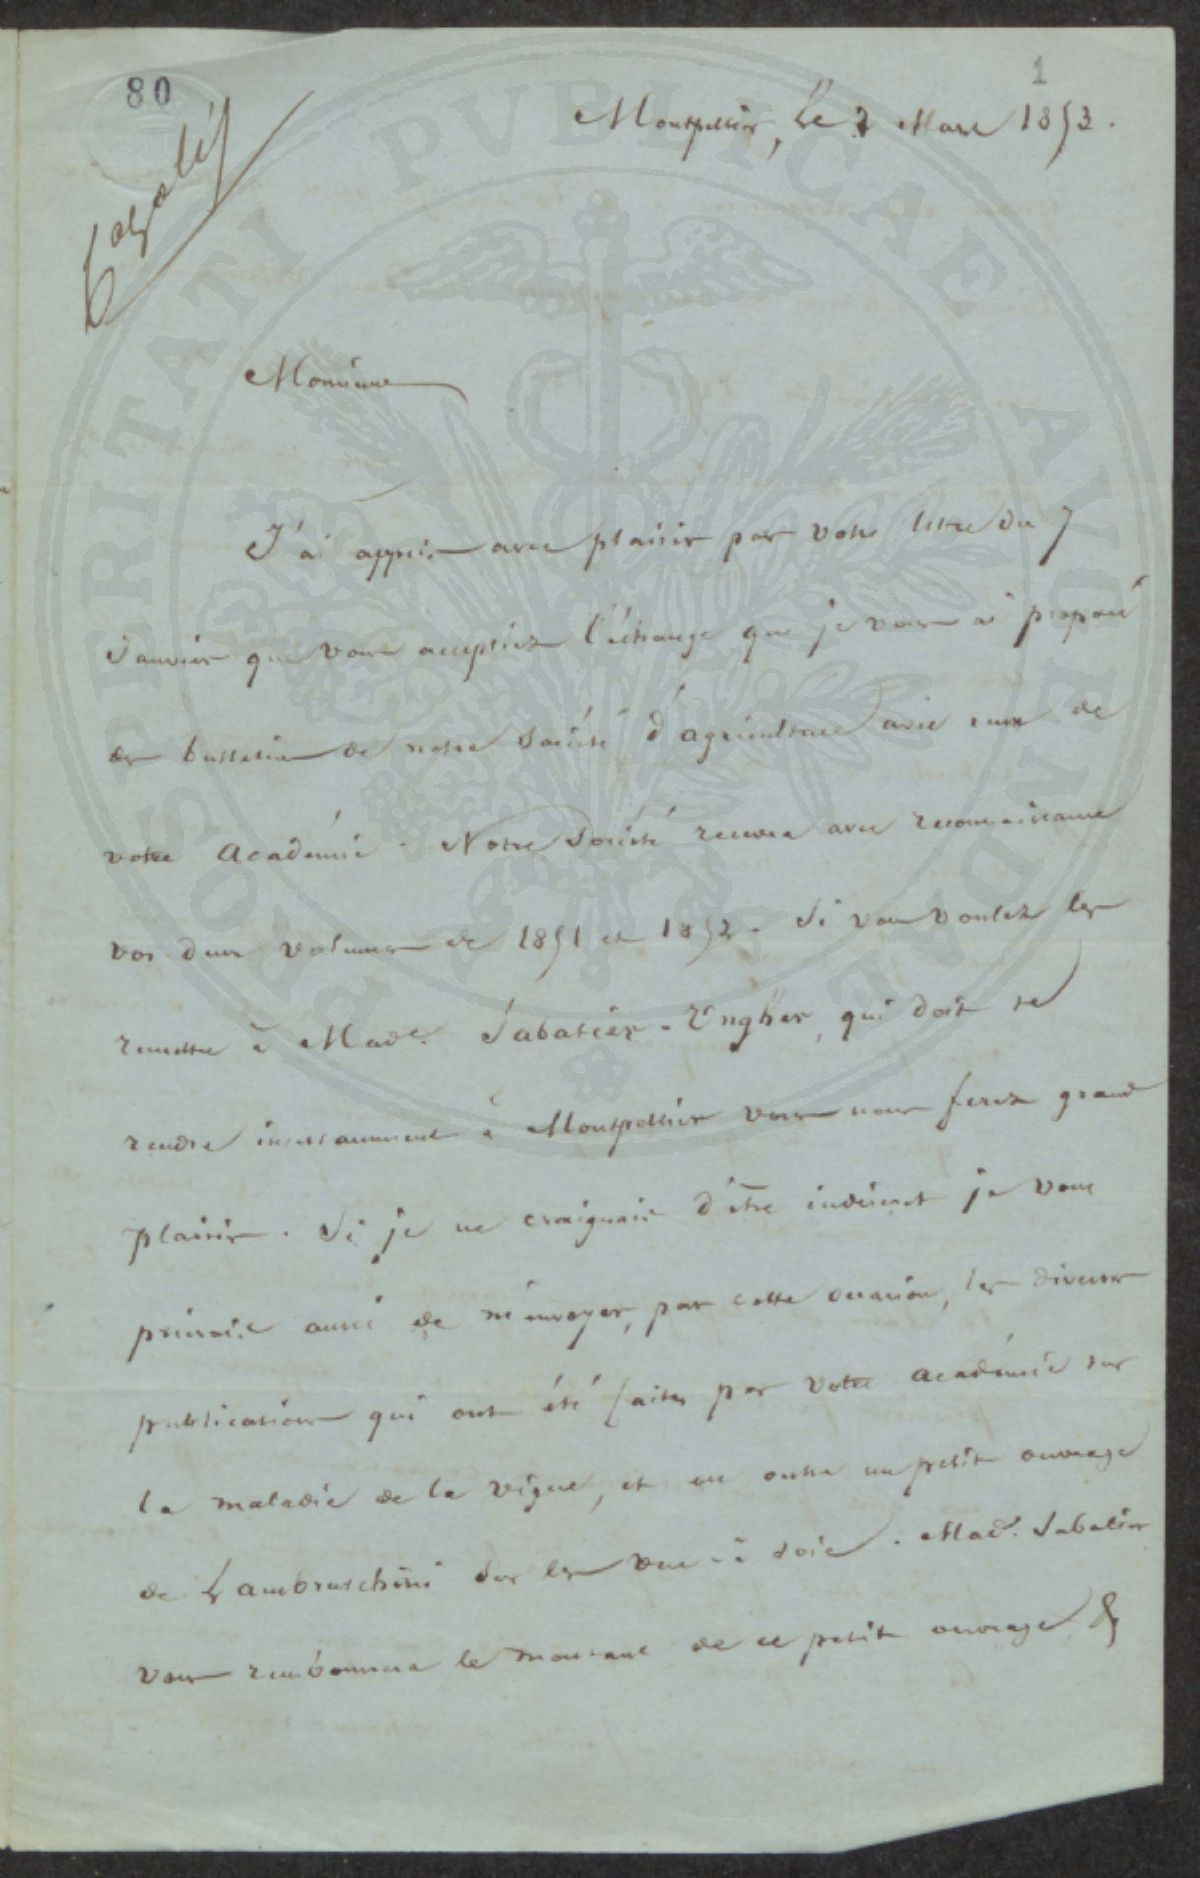 80
1
Cazalis
Montpellier, le 2 Mars 1853.
Monsieur
J'ai appris avec plaisir par votre lettre du 7
Janvier que vous acceptiez l'échange que je vous ai proposé
des bulletins de notre Société d'agriculture avec ceux de
votre Académie. Notre Société recevra avec reconnaissance
vos deux volumes de 1851 et 1852. Si vous voulez les
remettre à Made. Sabatier-Ungher, qui doit se
rendre incessamment à Montpellier vous nous ferez grand
plaisir. Si je ne craignais d'être indiscret je vous
prierais aussi de m'envoyer, par cette occasion, les diverses
publications qui ont été faites par votre académie sur
la maladie de la vigne, et en outre un petit ouvrage
de Lambruschini sur les vers à soie. Made. Sabatier
vous remboursera le montant de ce petit ouvrage &
PROSPERITATI PVBLICAE AVGENDAE